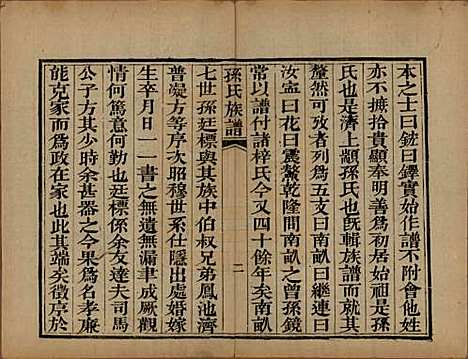 本之士曰鋐曰鐸實始作譜不附會他姓
亦不摭拾貴顯奉明善為初居始祖於是孫
氏也是濟上顓孫氏也旣輯族譜而南畝
釐然可考者列為五支曰南畝曰繼連曰
汝寅曰花曰農鰲乾隆間南畝之曾孫鏡
常以譜付諸梓氏今又四十餘年矣南畝
孫氏族譜
二
七世孫廷標與其族中伯叔兄弟鳳池濟
普凝方等序次昭穆世系仕隱出處婚嫁
生卒月日一一書之無遺無漏聿成厥觀
情何篤意何勤也廷標係余友達夫司馬
公子方其少時余甚器之今果為名孝廉
能克家而為政在家也此其端矣徵序於